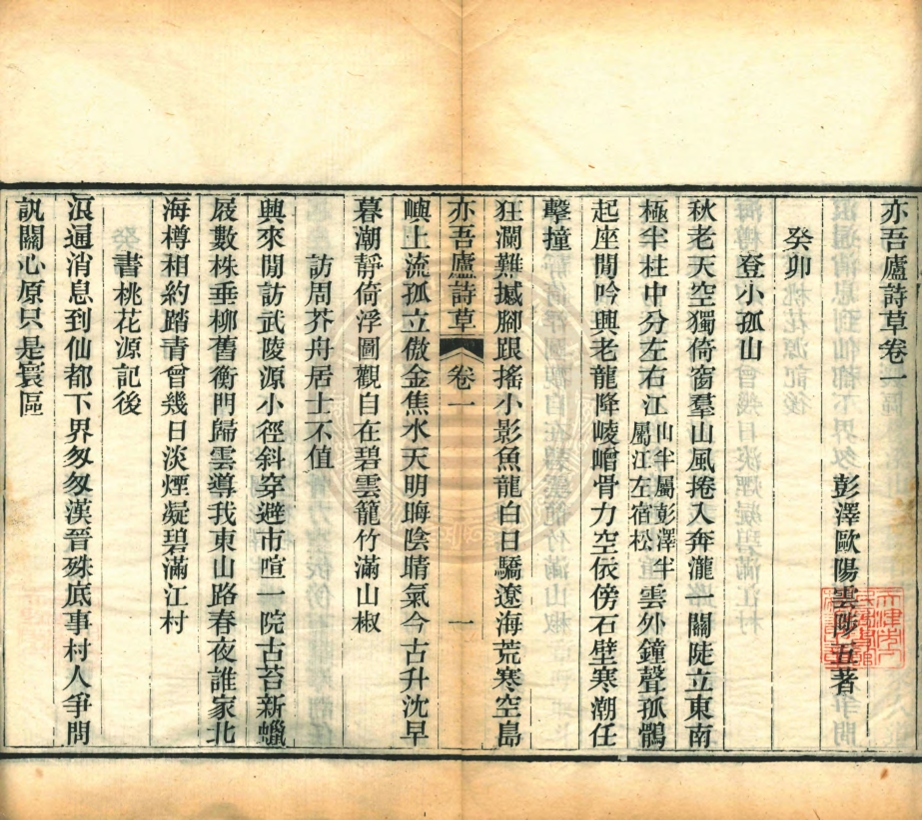 亦吾廬詩草卷一
彭澤歐陽雲陟五著
癸卯
登小孤山
秋老天空獨倚窗羣山風捲入奔瀧一關陡立東南
極半柱中分左右江山半屬彭澤半屬江左宿松雲外鐘聲孤鶻
起座閒吟興老龍降崚嶒骨力空依傍石壁寒潮任
擊撞
狂瀾難撼腳跟搖小影魚龍白日驕遼海荒寒空島
亦吾廬詩草 卷一 一
嶼上流孤立傲金焦水天明晦陰晴氣今古升沈早
暮潮靜倚浮圖觀自在碧雲籠竹滿山椒
訪周芥舟居士不值
興來閒訪武陵源小徑斜穿避市喧一院古苔新蠟
屐數株垂柳舊衡門歸雲導我東山路春夜誰家北
海樽相約踏青曾幾日淡煙凝碧滿江村
書桃花源記後
浪逼消息到仙都下界匆匆漢晉殊底事村人爭問
訊關心原只是寰區